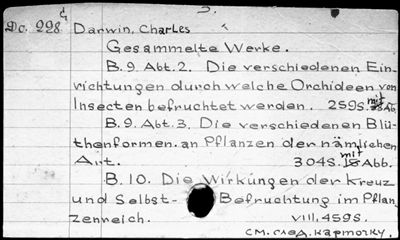 Dc. 228
Darwin, Charles
Gesammelte Werke.
B. 9. Abt. 2. Die verschiedenen Ein-
richtungen durch welche Orchideen von
Insecten befruchtet werden. 259 S. mit
B. 9. Abt. 3. Die verschiedenen Blü-
thenformen an Pflanzen der nämlichen
Art. 304 S. mit 15 Abb.
B. 10. Die Wirkungen der Kreuz
und Selbst- Befruchtung im Pflan-
zenreich. VIII, 459 S.
см. след. карточку.